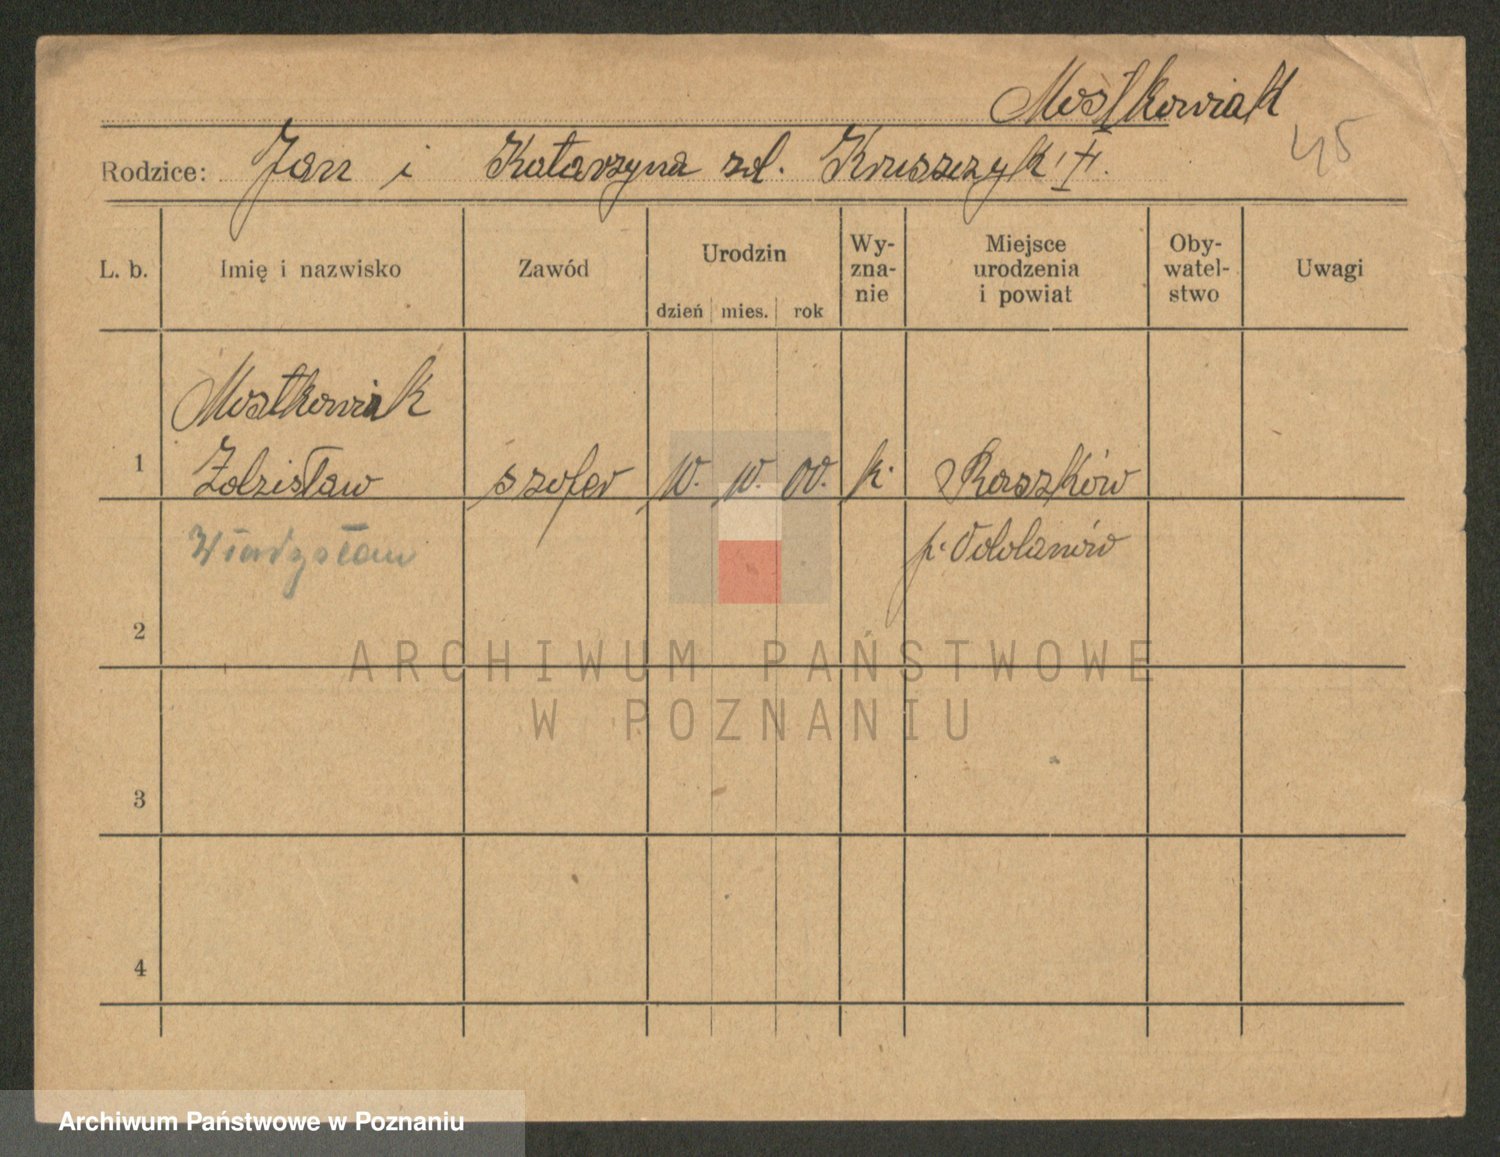 Mostkowiak
45
Rodzice: Jan i Katarzyna zd. Kruszczyk
L. b. Imię i nazwisko Zawód Urodzin dzień mies. rok Wy-zna-nie Miejsce urodzenia i powiat Oby-watel-stwo Uwagi
Mostkowiak
1 Zdzisław szofer 10. 10. 00. k. Raszków
Władysław p. Odolanów
2
3
4
ARCHIWUM PAŃSTWOWE
W POZNANIU
Archiwum Państwowe w Poznaniu